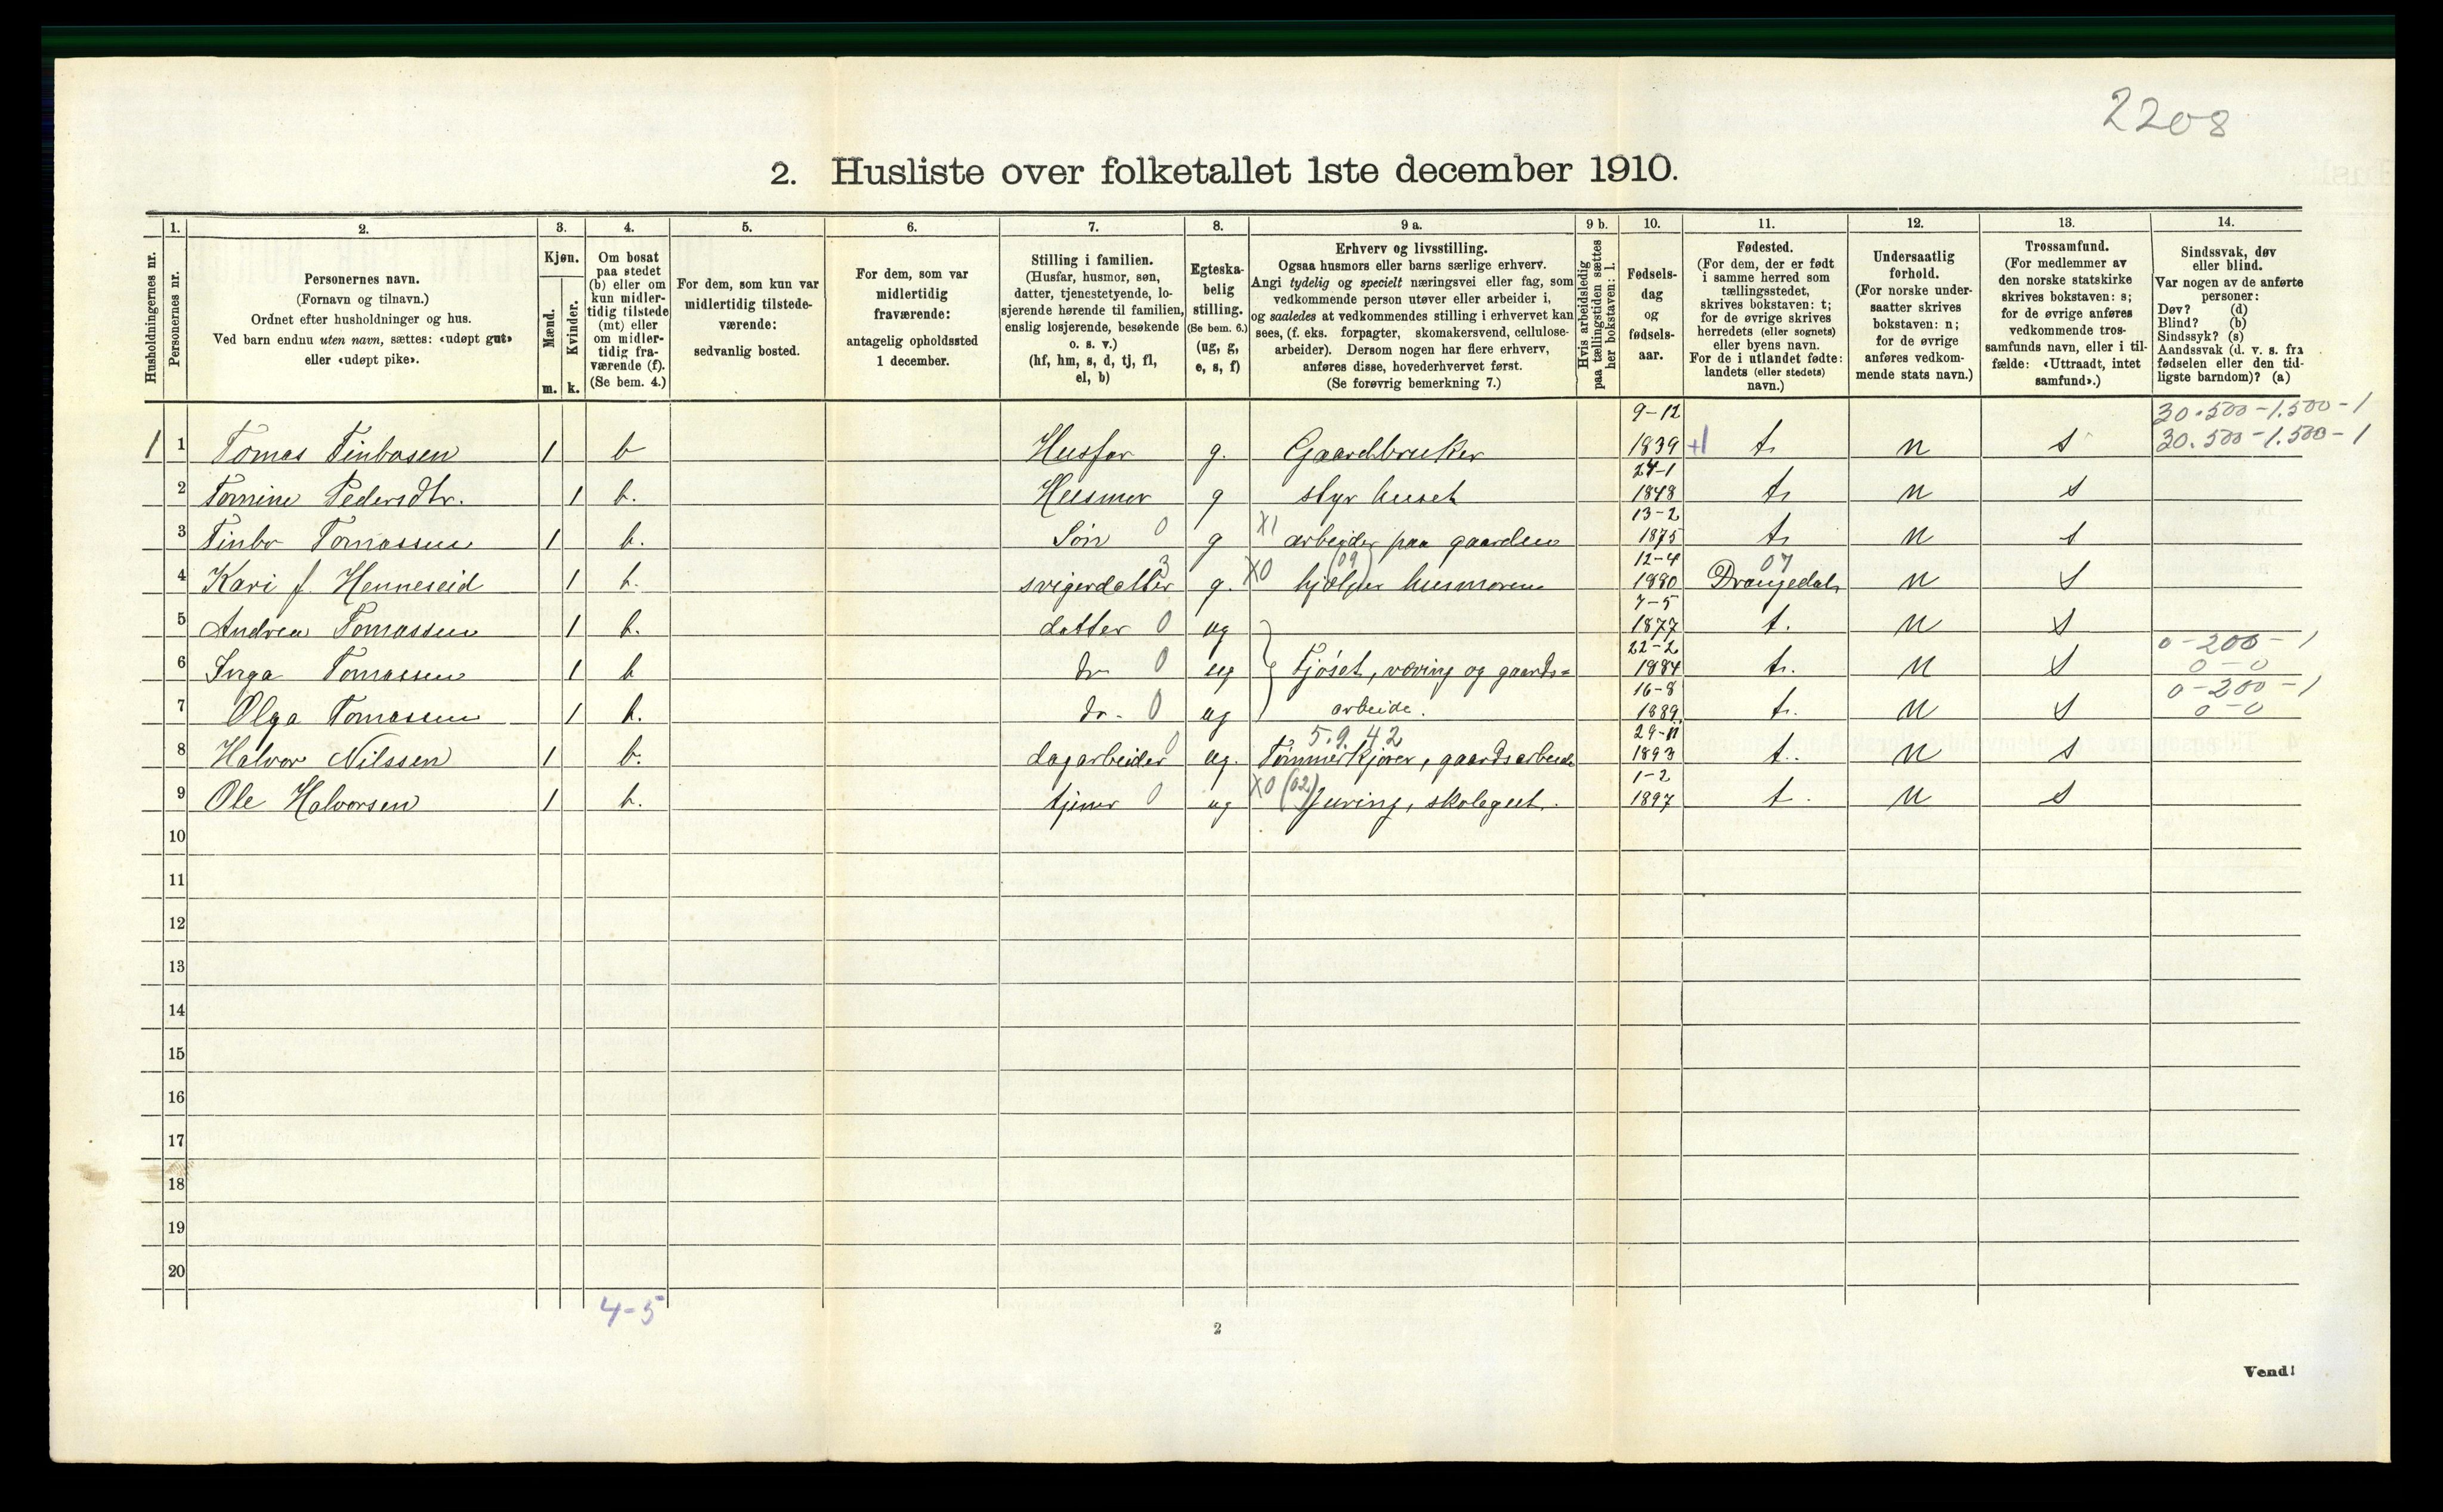 2208
2. Husliste over folketallet 1ste december 1910.
Husholdningernes nr.
1. Personernes nr.
2. Personernes navn.
(Fornavn og tilnavn.)
Ordnet efter husholdninger og hus.
Ved barn endnu uten navn, sættes: «udøpt gut»
eller «udøpt pike».
3. Kjøn.
Mænd. m.
Kvinder. k.
4. Om bosat
paa stedet
(b) eller om
kun midler-
tidig tilstede
(mt) eller
om midler-
tidig fra-
værende (f).
(Se bem. 4.)
5. For dem, som kun var
midlertidig tilstede-
værende:
sedvanlig bosted.
6. For dem, som var
midlertidig
fraværende:
antagelig opholdssted
1 december.
7. Stilling i familien.
(Husfar, husmor, søn,
datter, tjenestetyende, lo-
sjerende hørende til familien,
enslig losjerende, besøkende
o. s. v.)
(hf, hm, s, d, tj, fl,
el, b)
8. Egteska-
belig
stilling.
(Se bem. 6.)
(ug, g,
e, s, f)
9 a. Erhverv og livsstilling.
Ogsaa husmors eller barns særlige erhverv.
Angi tydelig og specielt næringsvei eller fag, som
vedkommende person utøver eller arbeider i,
og saaledes at vedkommendes stilling i erhvervet kan
sees, (f. eks. forpagter, skomakersvend, cellulose-
arbeider). Dersom nogen har flere erhverv,
anføres disse, hovederhvervet først.
(Se forøvrig bemerkning 7.)
9 b. Hvis arbeidsledig
paa tællingstiden sættes
her bokstaven: l.
10. Fødsels-
dag
og
fødsels-
aar.
11. Fødested.
(For dem, der er født
i samme herred som
tællingsstedet,
skrives bokstaven: t;
for de øvrige skrives
herredets (eller sognets)
eller byens navn.
For de i utlandet fødte:
landets (eller stedets)
navn.)
12. Undersaatlig
forhold.
(For norske under-
saatter skrives
bokstaven: n;
for de øvrige
anføres vedkom-
mende stats navn.)
13. Trossamfund.
(For medlemmer av
den norske statskirke
skrives bokstaven: s;
for de øvrige anføres
vedkommende tros-
samfunds navn, eller i til-
fælde: «Uttraadt, intet
samfund».)
14. Sindssvak, døv
eller blind.
Var nogen av de anførte
personer:
Døv? (d)
Blind? (b)
Sindssyk? (s)
Aandssvak (d. v. s. fra
fødselen eller den tid-
ligste barndom)? (a)
9-12 30.500-1.500-1
1 1 Tomas Finbosen 1 b Husfar g. Gaardbruker 1839 +1 t. n s 30.500-1.500-1
24-1
2 Tomine Pedersdtr. 1 b. Husmor g styr huset 1848 t. n s
13-2
3 Finbo Tomassen 1 b. Søn 0 g X1 arbeider paa gaarden 1875 t. n s
3 (09) 12-4 07
4 Kari f. Henneseid 1 b. svigerdatter g. X0 hjælper husmoren 1880 Drangedal n s
7-5
5 Andrea Tomassen 1 b. datter 0 ug 1877 t. n s
22-2 0-200-1
6 Inga Tomassen 1 b do 0 ug Fjøset, væving og gaards= 1884 t. n s 0-0
16-8 0-200-1
7 Olga Tomassen 1 b. do. 0 ug arbeide. 1889 t. n s 0-0
5.9.42 29-11
8 Halvor Nilssen 1 b. dagarbeider 0 ug. Tømmerkjører, gaardsarbeide 1893 t. n s
1-2
9 Ole Halvorsen 1 b. tjener 0 ug X0 (02) Juring, skolegut. 1897 t. n s
10
11
12
13
14
15
16
17
18
19
20
4-5
2
Vend!